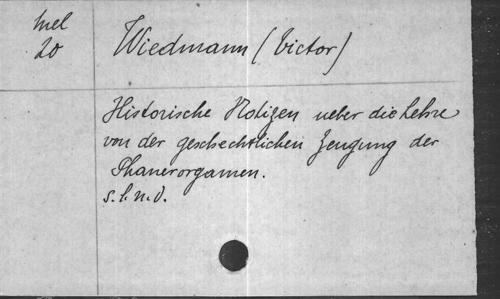 Mel
20
Wiedmann (Victor)
Historische Notizen ueber die Lehre
von der geschechtlichen Zeugung der
Phanerorgamen.
s.l.n.d.